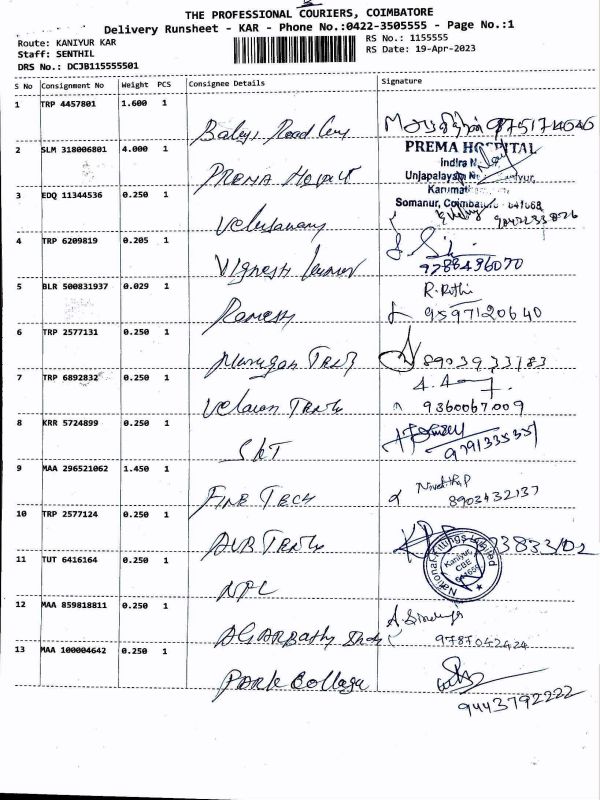 THE PROFESSIONAL COURIERS, COIMBATORE
Delivery Runsheet - KAR - Phone No.:0422-3505555 - Page No.:1
Route: KANIYUR KAR
RS No.: 1155555
Staff: SENTHIL
RS Date: 19-Apr-2023
DRS No.: DCJB115555501
S No Consignment No Weight PCS Consignee Details Signature
1 TRP 4457801 1.600 1
9751714646
2 SLM 318006801 4.000 1
PREMA HOSPITAL
Indira N
Unjapalayam
Kaniyur,
PREMA
Karumath
3 EDQ 11344536 0.250 1
Somanur, Coimbatore - 641668
Velusamy
4 TRP 6209819 0.205 1
Vignesh Kumar
9788496070
5 BLR 500831937 0.029 1
R. Rithi
Ramesh
9597120640
6 TRP 2577131 0.250 1
Murugan Trad
8903933183
7 TRP 6892832 0.250 1
Velavan
9360067009
8 KRR 5724899 0.250 1
SKT
9791335351
9 MAA 296521062 1.450 1
Fine Tech
8903432137
10 TRP 2577124 0.250 1
11 TUT 6416164 0.250 1
National Fittings Limited
Kaniyur,
CBE
641659
NPL
12 MAA 859818811 0.250 1
A. Sinduja
9787042424
13 MAA 100004642 0.250 1
Park College
9443792222